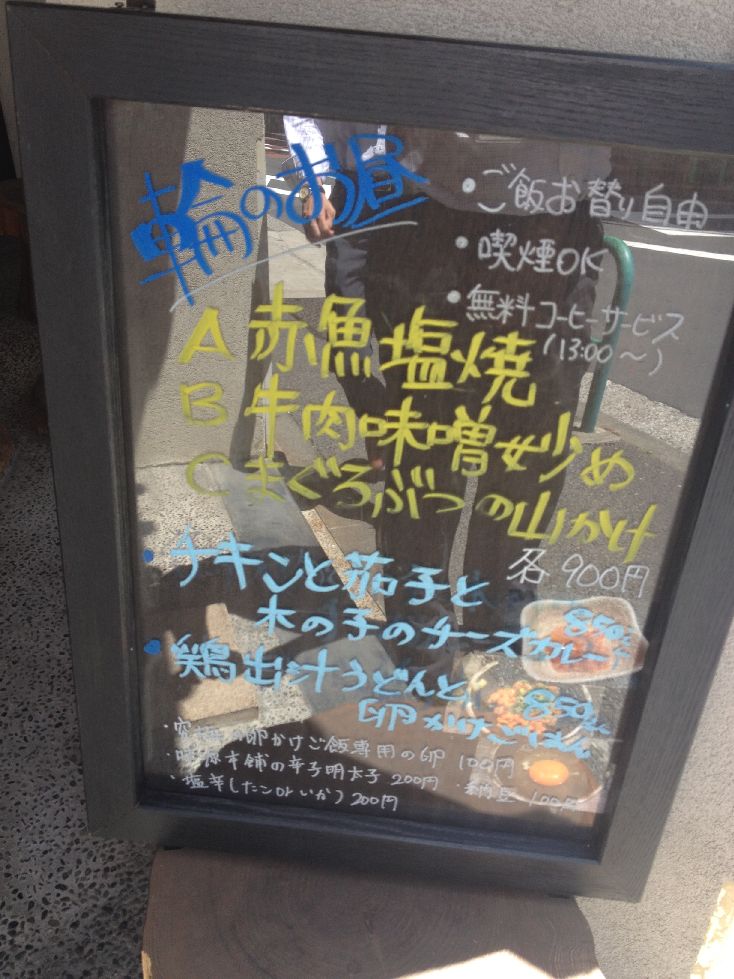 輪のお昼
・ご飯お替り自由
・喫煙OK
・無料コーヒーサービス
(13:00〜)
A 赤魚塩焼
B 牛肉味噌炒め
C まぐろぶつの山かけ
各900円
・チキンと茄子と
木の子のチーズカレー 850円
・鶏出汁うどんと
卵かけごはん 850円
・究極の卵かけご飯専用の卵 100円
本舗の辛子明太子 200円
・納豆 100円
・塩辛(たこorいか) 200円